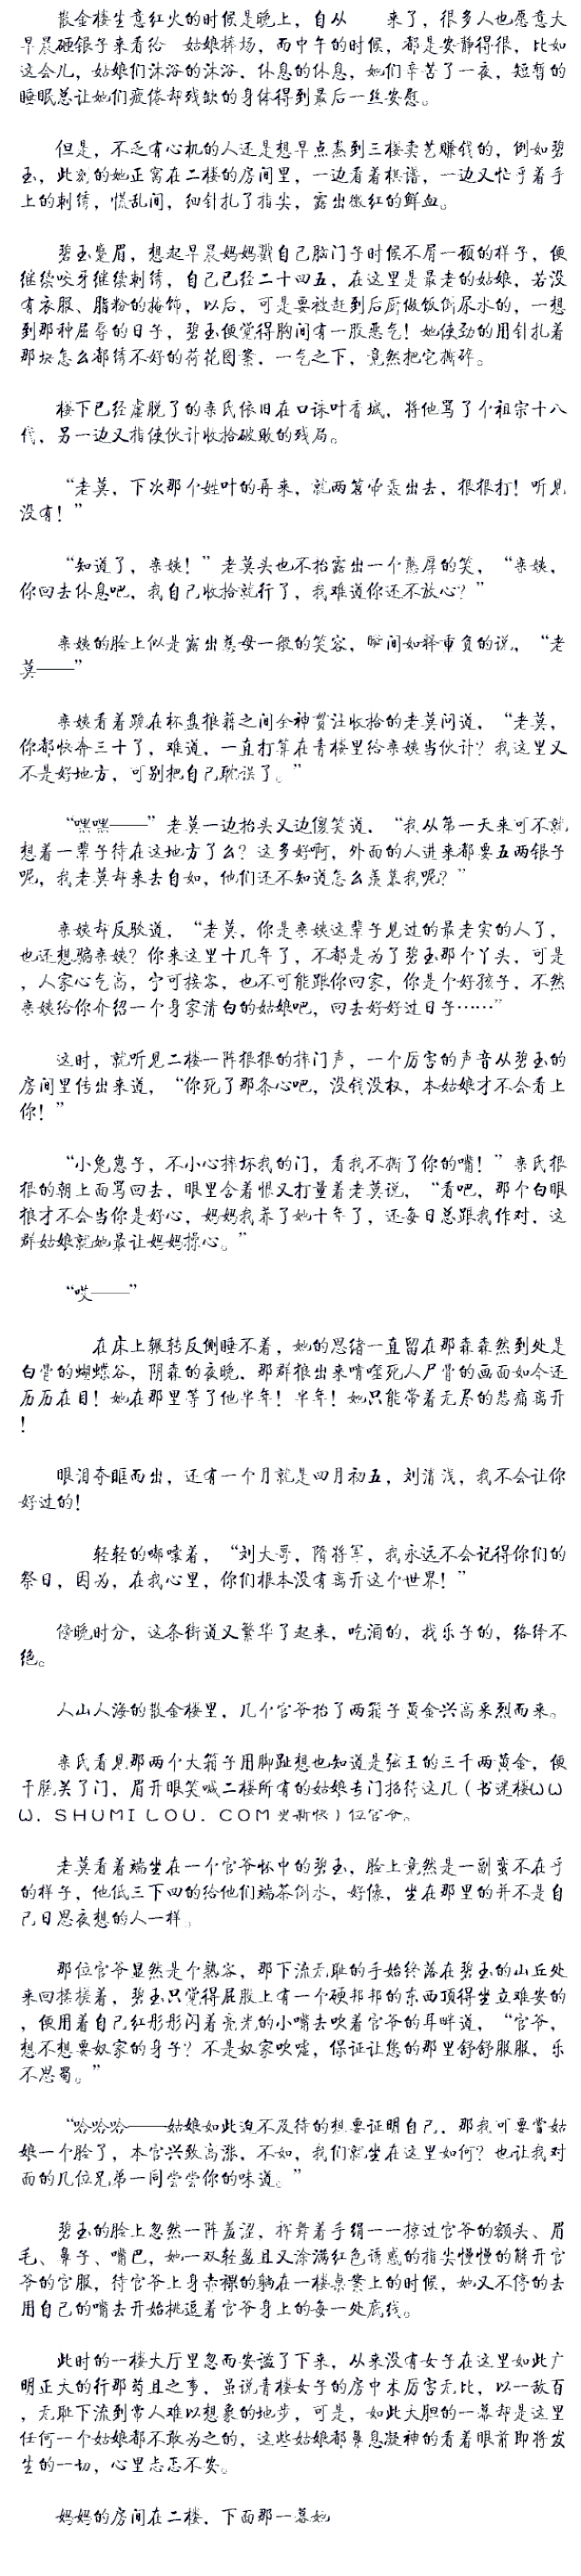 散金楼生意红火的时候是晚上，自从　　来了，很多人也愿意大
早晨砸银子来看给　姑娘捧场，而中午的时候，都是安静得很，比如
这会儿，姑娘们沐浴的沐浴，休息的休息，她们辛苦了一夜，短暂的
睡眠总让她们疲倦却残缺的身体得到最后一丝安慰。
但是，不乏有心机的人还是想早点熬到三楼卖艺赚钱的，例如碧
玉，此刻的她正窝在二楼的房间里，一边看着棋谱，一边又忙乎着手
上的刺绣，慌乱间，细针扎了指尖，露出微红的鲜血。
碧玉蹙眉，想起早晨妈妈戳自己脑门子时候不屑一顾的样子，便
继续咬牙继续刺绣，自己已经二十四五，在这里是最老的姑娘，若没
有衣服、脂粉的掩饰，以后，可是要被赶到后厨做饭倒尿水的，一想
到那种屈辱的日子，碧玉便觉得胸间有一股恶气！她使劲的用针扎着
那块怎么都绣不好的荷花图案，一气之下，竟然把它撕碎。
楼下已经虚脱了的亲氏依旧在口诛叶香城，将他骂了个祖宗十八
代，另一边又指使伙计收拾破败的残局。
“老莫，下次那个姓叶的再来，就两笤帚轰出去，狠狠打！听见
没有！”
“知道了，亲姨！”老莫头也不抬露出一个憨厚的笑，“亲姨，
你回去休息吧，我自己收拾就行了，我难道你还不放心？”
亲姨的脸上似是露出慈母一般的笑容，瞬间如释重负的说，“老
莫——”
亲姨看着跪在杯盘狼藉之间全神贯注收拾的老莫问道，“老莫，
你都快奔三十了，难道，一直打算在青楼里给亲姨当伙计？我这里又
不是好地方，可别把自己耽误了。”
“嘿嘿——”老莫一边抬头又边傻笑道，“我从第一天来可不就
想着一辈子待在这地方了么？这多好啊，外面的人进来都要五两银子
呢，我老莫却来去自如，他们还不知道怎么羡慕我呢？”
亲姨却反驳道，“老莫，你是亲姨这辈子见过的最老实的人了，
也还想骗亲姨？你来这里十几年了，不都是为了碧玉那个丫头，可是
，人家心气高，宁可接客，也不可能跟你回家，你是个好孩子，不然
亲姨给你介绍一个身家清白的姑娘吧，回去好好过日子……”
这时，就听见二楼一阵狠狠的摔门声，一个厉害的声音从碧玉的
房间里传出来道，“你死了那条心吧，没钱没权，本姑娘才不会看上
你！”
“小兔崽子，不小心摔坏我的门，看我不撕了你的嘴！”亲氏狠
狠的朝上面骂回去，眼里含着恨又打量着老莫说，“看吧，那个白眼
狼才不会当你是好心，妈妈我养了她十年了，还每日总跟我作对，这
群姑娘就她最让妈妈操心。”
“哎——”
在床上辗转反侧睡不着，她的思绪一直留在那森森然到处是
白骨的蝴蝶谷，阴森的夜晚，那群狼出来啃噬死人尸骨的画面如今还
历历在目！她在那里等了他半年！半年！她只能带着无尽的悲痛离开
！
眼泪夺眶而出，还有一个月就是四月初五，刘清浅，我不会让你
好过的！
轻轻的嘟囔着，“刘大哥，隋将军，我永远不会记得你们的
祭日，因为，在我心里，你们根本没有离开这个世界！”
傍晚时分，这条街道又繁华了起来，吃酒的，找乐子的，络绎不
绝。
人山人海的散金楼里，几个官爷抬了两箱子黄金兴高采烈而来。
亲氏看见那两个大箱子用脚趾想也知道是弦王的三千两黄金，便
干脆关了门，眉开眼笑喊二楼所有的姑娘专门招待这几（书迷楼ＷＷ
Ｗ．ＳＨＵＭＩＬＯＵ．ＣＯＭ更新快）位官爷。
老莫看着端坐在一个官爷怀中的碧玉，脸上竟然是一副蛮不在乎
的样子，他低三下四的给他们端茶倒水，好像，坐在那里的并不是自
己日思夜想的人一样。
那位官爷显然是个熟客，那下流无耻的手始终落在碧玉的山丘处
来回揉搓着，碧玉只觉得屁股上有一个硬邦邦的东西顶得坐立难安的
，便用着自己红彤彤闪着亮光的小嘴去吹着官爷的耳畔道，“官爷，
想不想要奴家的身子？不是奴家吹嘘，保证让您的那里舒舒服服，乐
不思蜀。”
“哈哈哈——姑娘如此迫不及待的想要证明自己，那我可要赏姑
娘一个脸了，本官兴致高涨，不如，我们就坐在这里如何？也让我对
面的几位兄弟一同尝尝你的味道。”
碧玉的脸上忽然一阵羞涩，挥舞着手绢一一掠过官爷的额头、眉
毛、鼻子、嘴巴，她一双轻盈且又涂满红色诱惑的指尖慢慢的解开官
爷的官服，待官爷上身赤裸的躺在一楼桌案上的时候，她又不停的去
用自己的嘴去开始挑逗着官爷身上的每一处底线。
此时的一楼大厅里忽而安谧了下来，从来没有女子在这里如此广
明正大的行那苟且之事，虽说青楼女子的房中术厉害无比，以一敌百
，无耻下流到常人难以想象的地步，可是，如此大胆的一幕却是这里
任何一个姑娘都不敢为之的，这些姑娘都鼻息凝神的看着眼前即将发
生的一切，心里忐忑不安。
妈妈的房间在二楼，下面那一幕她